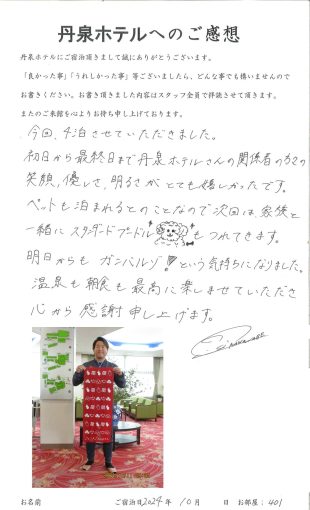 丹泉ホテルへのご感想
丹泉ホテルにご宿泊頂きまして誠にありがとうございます。
「良かった事」「うれしかった事」等ございましたら、どんな事でも構いませんので
お書きください。お書き頂きました内容はスタッフ全員で拝読させて頂きます。
またのご来館を心よりお待ち申し上げております。
今回、4泊させていただきました。
初日から最終日まで丹泉ホテルさんの関係者の方々の
笑顔、優しさ、明るさが とても嬉しかったです。
ペットも泊まれるとのことなので次回は家族と
一緒に スタンダードプードル も つれてきます。
明日からも ガンバルゾ! という気持ちになりました。
温泉も朝食も最高に楽しませていただき
心から感謝申し上げます。
お名前 ご宿泊日2024年 10月 日 お部屋:401